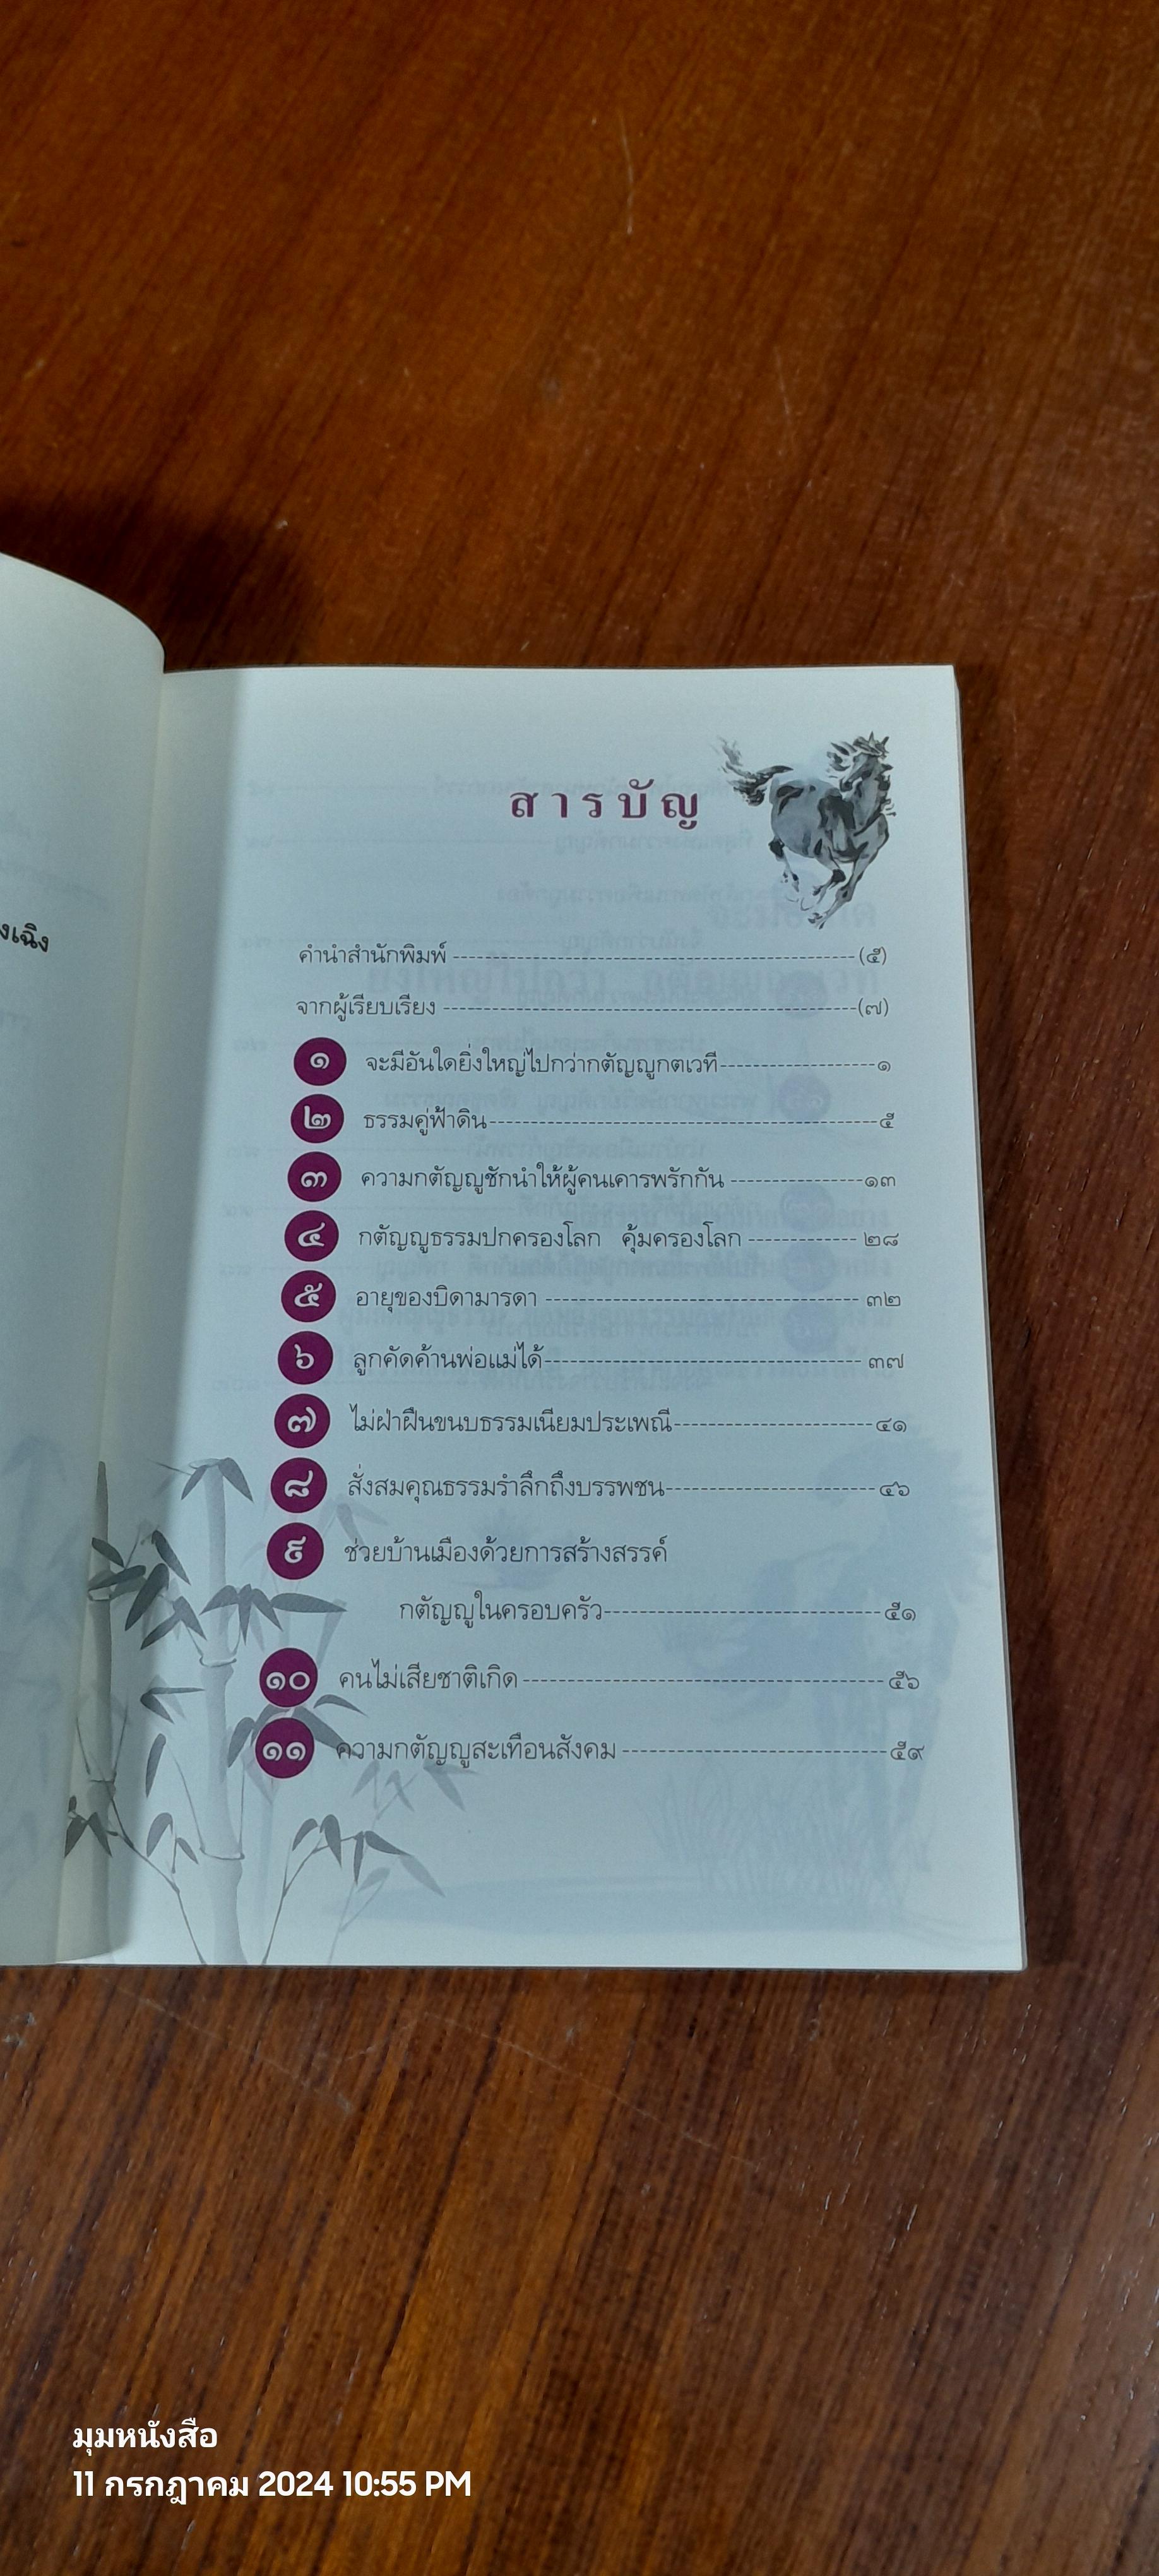 งเฉิง
สารบัญ
คำนำสำนักพิมพ์ ---------------------------------------------(๕)
จากผู้เรียบเรียง ----------------------------------------------(๗)
๑ จะมีอันใดยิ่งใหญ่ไปกว่ากตัญญูกตเวที-----------------๑
๒ ธรรมคู่ฟ้าดิน-------------------------------------------๕
๓ ความกตัญญูชักนำให้ผู้คนเคารพรักกัน ---------------๑๓
๔ กตัญญูธรรมปกครองโลก คุ้มครองโลก ------------ ๒๘
๕ อายุของบิดามารดา ----------------------------------- ๓๒
๖ ลูกคัดค้านพ่อแม่ได้----------------------------------- ๓๗
๗ ไม่ฝ่าฝืนขนบธรรมเนียมประเพณี----------------------๔๑
๘ สั่งสมคุณธรรมรำลึกถึงบรรพชน-----------------------๔๖
๙ ช่วยบ้านเมืองด้วยการสร้างสรรค์
กตัญญูในครอบครัว------------------------------๕๑
๑๐ คนไม่เสียชาติเกิด ---------------------------------------๕๖
๑๑ ความกตัญญูสะเทือนสังคม -----------------------------๕๙
มุมหนังสือ
11 กรกฎาคม 2024 10:55 PM